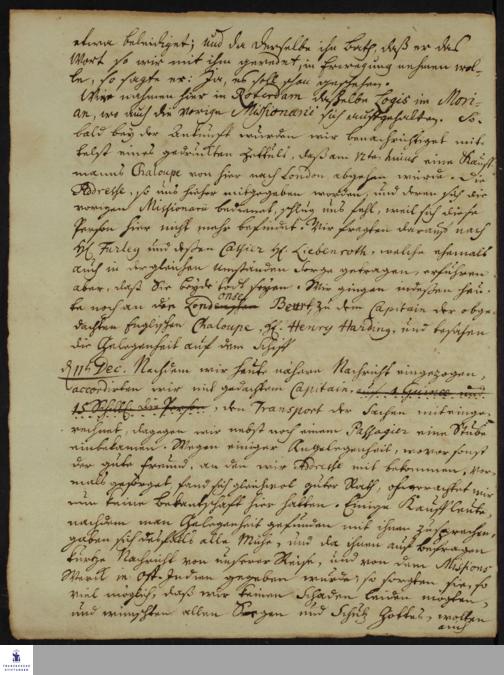 etwa beleidiget; und da derselbe ihn bath, daß er das
Wort so wir mit ihm geredet, in Erwegung nehmen wol-
le, so sagte er: Ja, es soll schon geschehen.
Wir nahmen hier in Roterdam dasselbe Logis im Mori-
an, wo auch die vorige Missionarii sich aufgehalten. So-
bald bey der Ankunft wurden wir benachrichtiget mit-
telst eines gedruckten Zettuls, daß am 12ten huius eine Kauff-
manns Chaloupe von hier nach London abgehen würde. Die
Addresse, so uns hieher mitgegeben worden, und deren sich die
vorigen Missionarii bedienet, schlug uns fehl, weil sich diese
Person hier nicht mehr befindet. Wir fragten darauf nach
H. Furley und deßen Cassier H. Liebenroth, welche ehemals
auch in dergleichen Umständen Sorge getragen, erfuhren
aber, daß Sie beyde todt seyen. Wir gingen indeßen heu-
te noch an die Londonsche Beurt, zu dem Capitain der obge-
dachten Englischen Chaloupe, H. Henry Harding, und besahen
die Gelegenheit auf dem Schiff
d. 11th Dec. Nachdem wir heute nähere Nachricht eingezogen,
accordirten wir mit gedachtem Capitain, auf 1 Guinee und
15 Schill. die Person, den Transport der Sachen mit einge-
rechnet, dagegen wir nebst noch einem Passagier eine Stube
einbekamen. Wegen einiger Angelegenheit, wovor sonst
der gute Freund, an den wir Addresse mit bekommen, vor-
mals gesorget, fand sich gleichwol guter Rath, ohnerachtet wir
nun keine Bekantschaft hier hatten. Einige Kaufleute,
nachdem man Gelegenheit gefunden mit ihnen zu sprechen,
gaben sich desfalls alle Mühe, und da ihnen auf Befragen
kurtze Nachricht von unserer Reise, und von dem Missions
Werck in Ost-Indien gegeben wurde; so sorgten sie, so
viel möglich, daß wir keinen Schaden leiden mögten,
und wünschten allen Segen und Schutz Gottes, wolten
auch
FRANCKESCHE
STIFTUNGEN